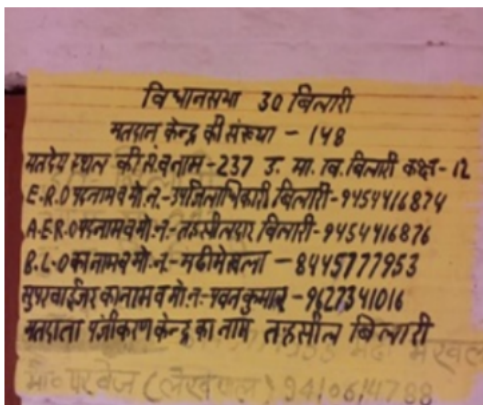 विधानसभा 30 बिलारी
मतदान केन्द्र की संख्या - 148
मतदेय स्थल की सं.व नाम - 237 उ. मा. वि. बिलारी कक्ष - 12
E.R.O पदनाम व मो.नं.- उपजिलाधिकारी बिलारी - 9454416874
A.E.R.O पदनाम व मो.नं.- तहसीलदार बिलारी - 9454416876
B.L.O का नाम व मो.नं.- - 8445777953
सुपरवाईजर का नाम व मो.नं.- पवन कुमार - 9627341016
मतदाता पंजीकरण केन्द्र का नाम तहसील बिलारी
मो० परवेज (लेखपाल)